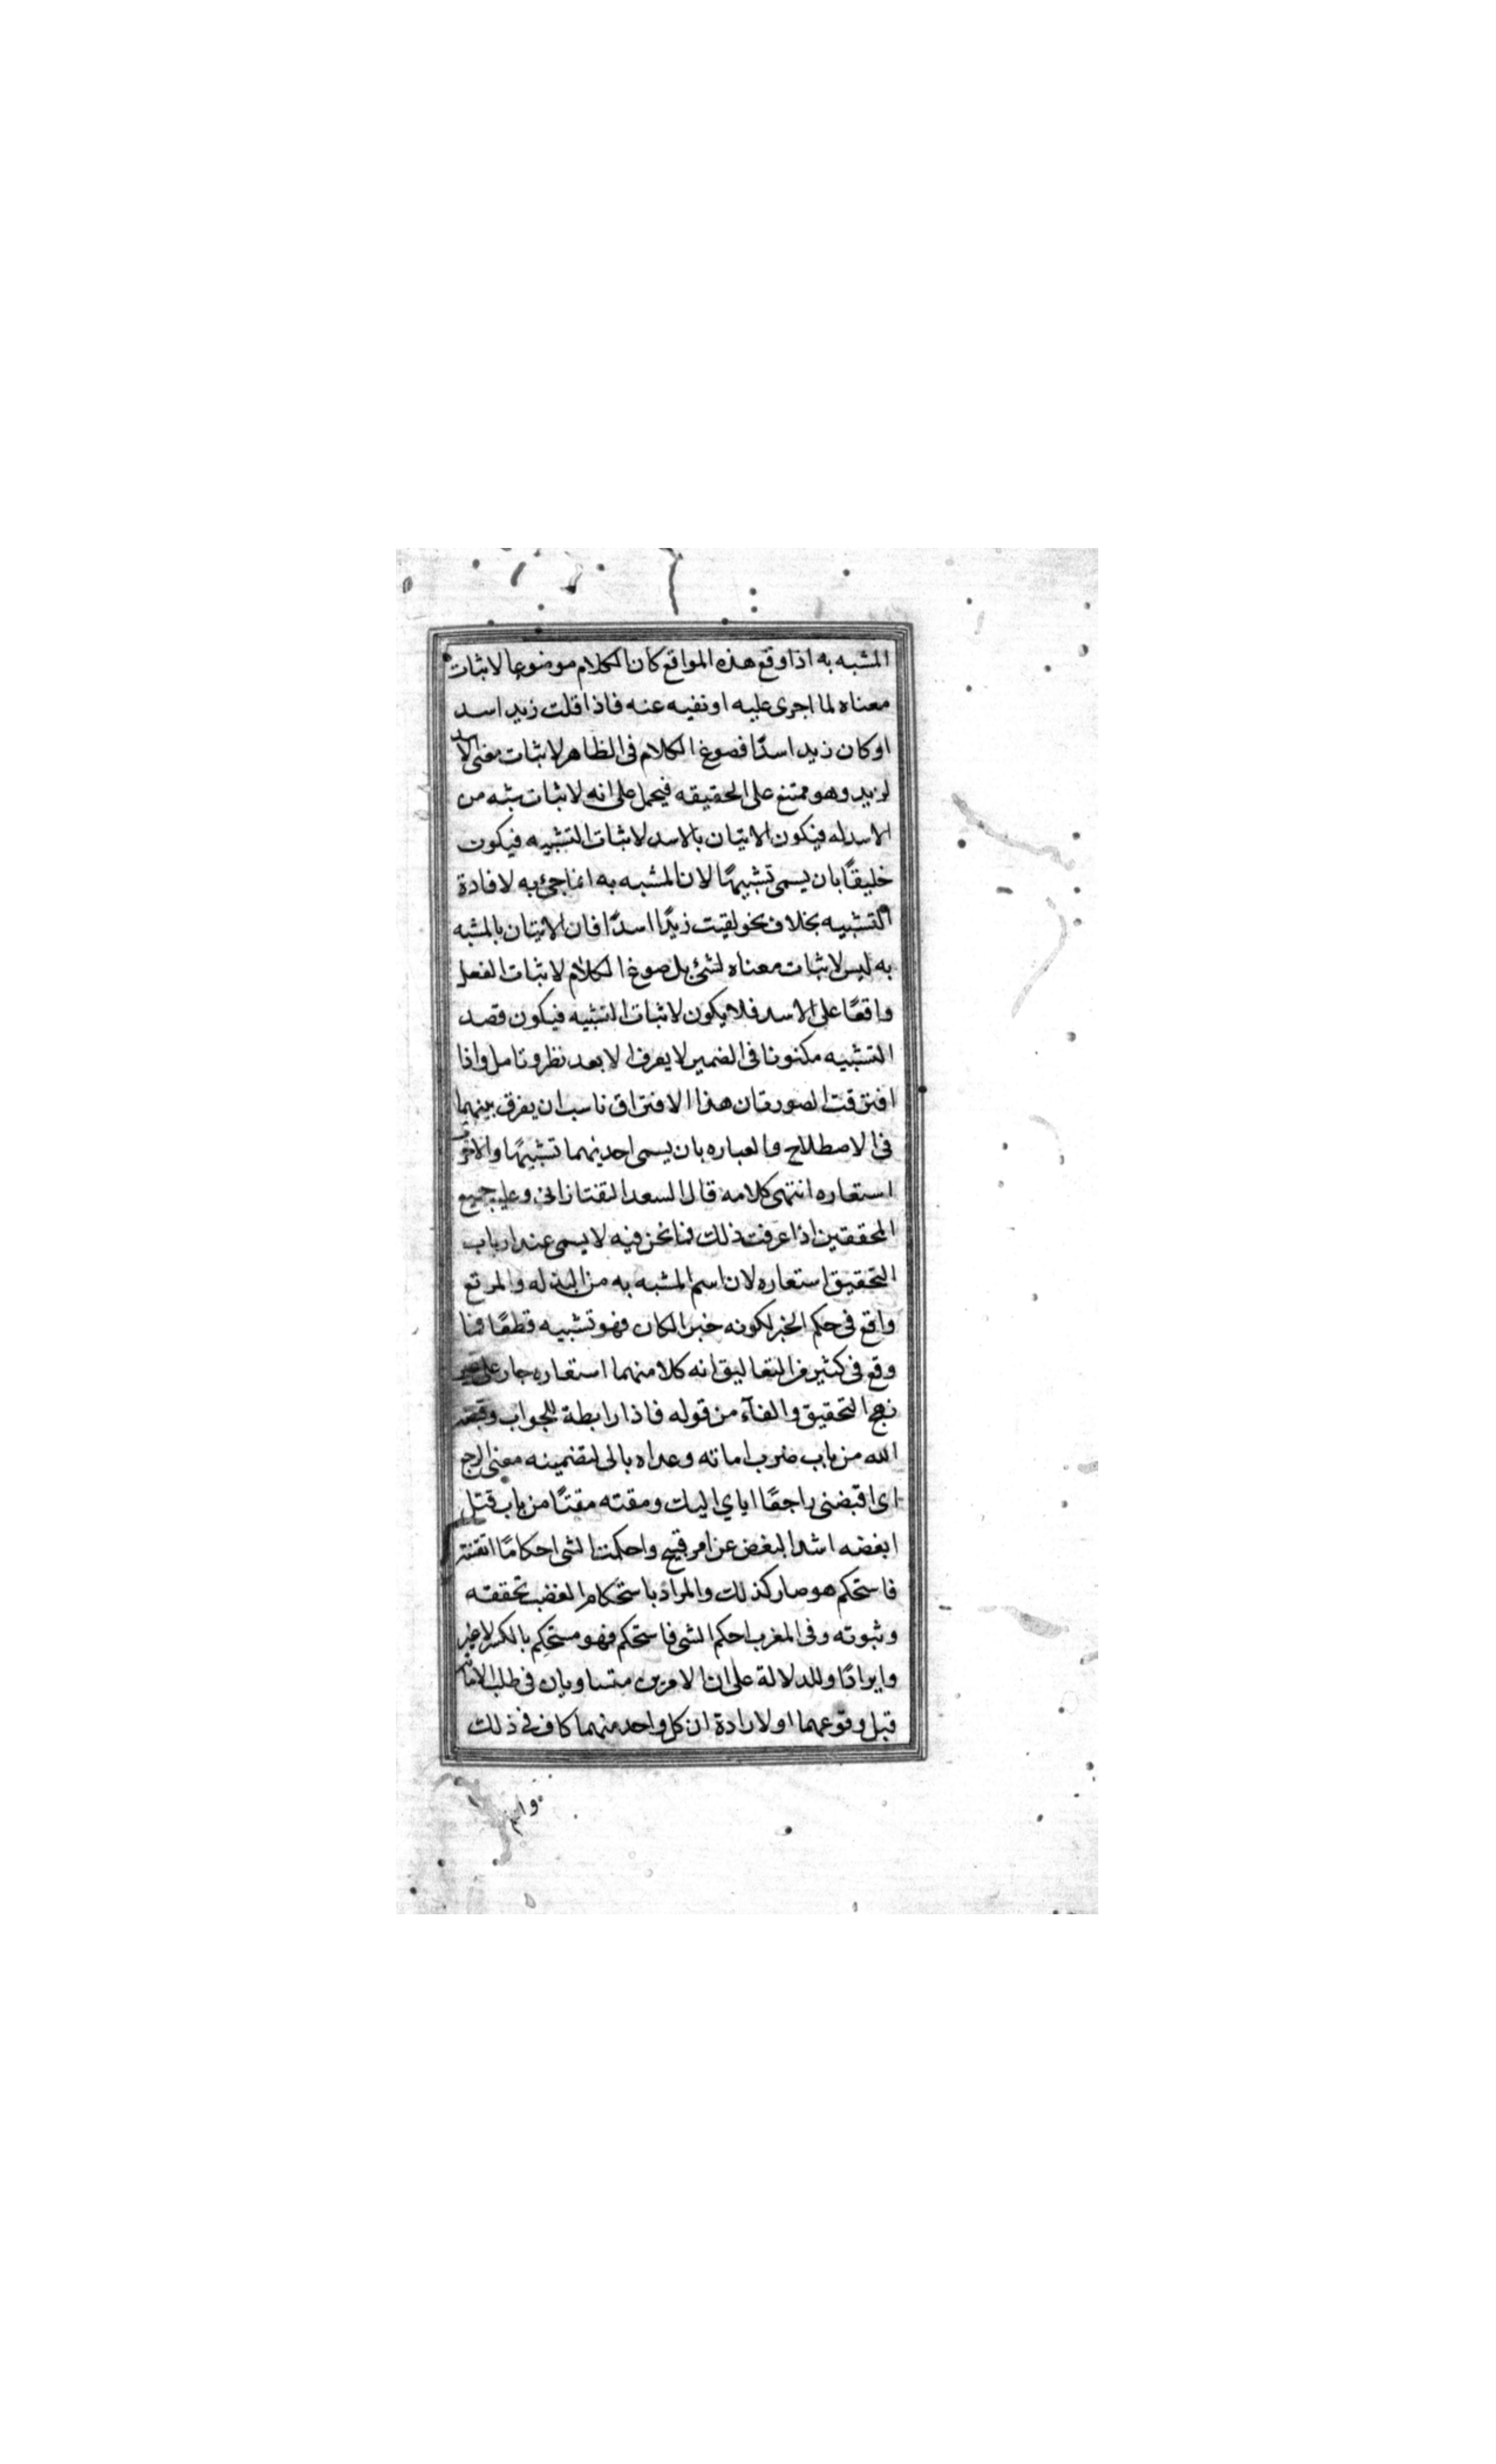 المشبه به اذا وقع هذه المواقع كان الكلام موضوعا لاثبات
معناه لما اجرى عليه او نفيه عنه فاذا قلت زيد اسد
او كان زيد اسدًا فصوغ الكلام فى الظاهر لاثبات معنى الاسد
لزيد وهو ممتنع على الحقيقه فيحمل على انه لاثبات شبه من
الاسد له فيكون الاتيان بالاسد لاثبات التشبيه فيكون
خليقًا بان يسمى تشبيهًا لان المشبه به انما جئ به لافادة
التشبيه بخلاف نحو لقيت زيدًا اسدًا فان الاتيان بالمشبه
به ليس لاثبات معناه لشئ بل صوغ الكلام لاثبات الفعل
واقعًا على الاسد فلا يكون لاثبات التشبيه فيكون قصد
التشبيه مكنونا فى الضمير لا يعرف الا بعد نظر وتامل واذا
افترقت الصورتان هذا الافتراق ناسب ان يفرق بينهما
فى الاصطلاح والعباره بان يسمى احديهما تشبيهًا والاخرى
استعاره انتهى كلامه قال السعد التفتازانى وعليه جميع
المحققين اذا عرفت ذلك فما نحن فيه لا يسمى عند ارباب
التحقيق استعاره لان اسم المشبه به من البذله والمرتع
واقع فى حكم الخبر لكونه خبر الكان فهو تشبيه قطعًا فما
وقع فى كثير من التعاليق انه كلا منهما استعاره جار على غير
نهج التحقيق والفآء من قوله فاذا رابطة للجواب وقبضه
الله من باب ضرب اماته وعداه بالى لتضمينه معنى الرجع
اى اقبضنى راجعًا اياي اليك ومقته مقتًا من باب قتل
ابغضه اشد البغض عن امر قبيح واحكمت الشى احكامًا اتقنته
فاستحكم هو صار كذلك والمراد باستحكام الغضب تحققه
وثبوته وفى المغرب احكم الشى فاستحكم فهو مستحكم بالكسر لا غير
وايراد او للدلالة على ان الامرين متساويان فى طلب الاماته
قبل وقوعهما او لارادة ان كل واحد منهما كاف فى ذلك